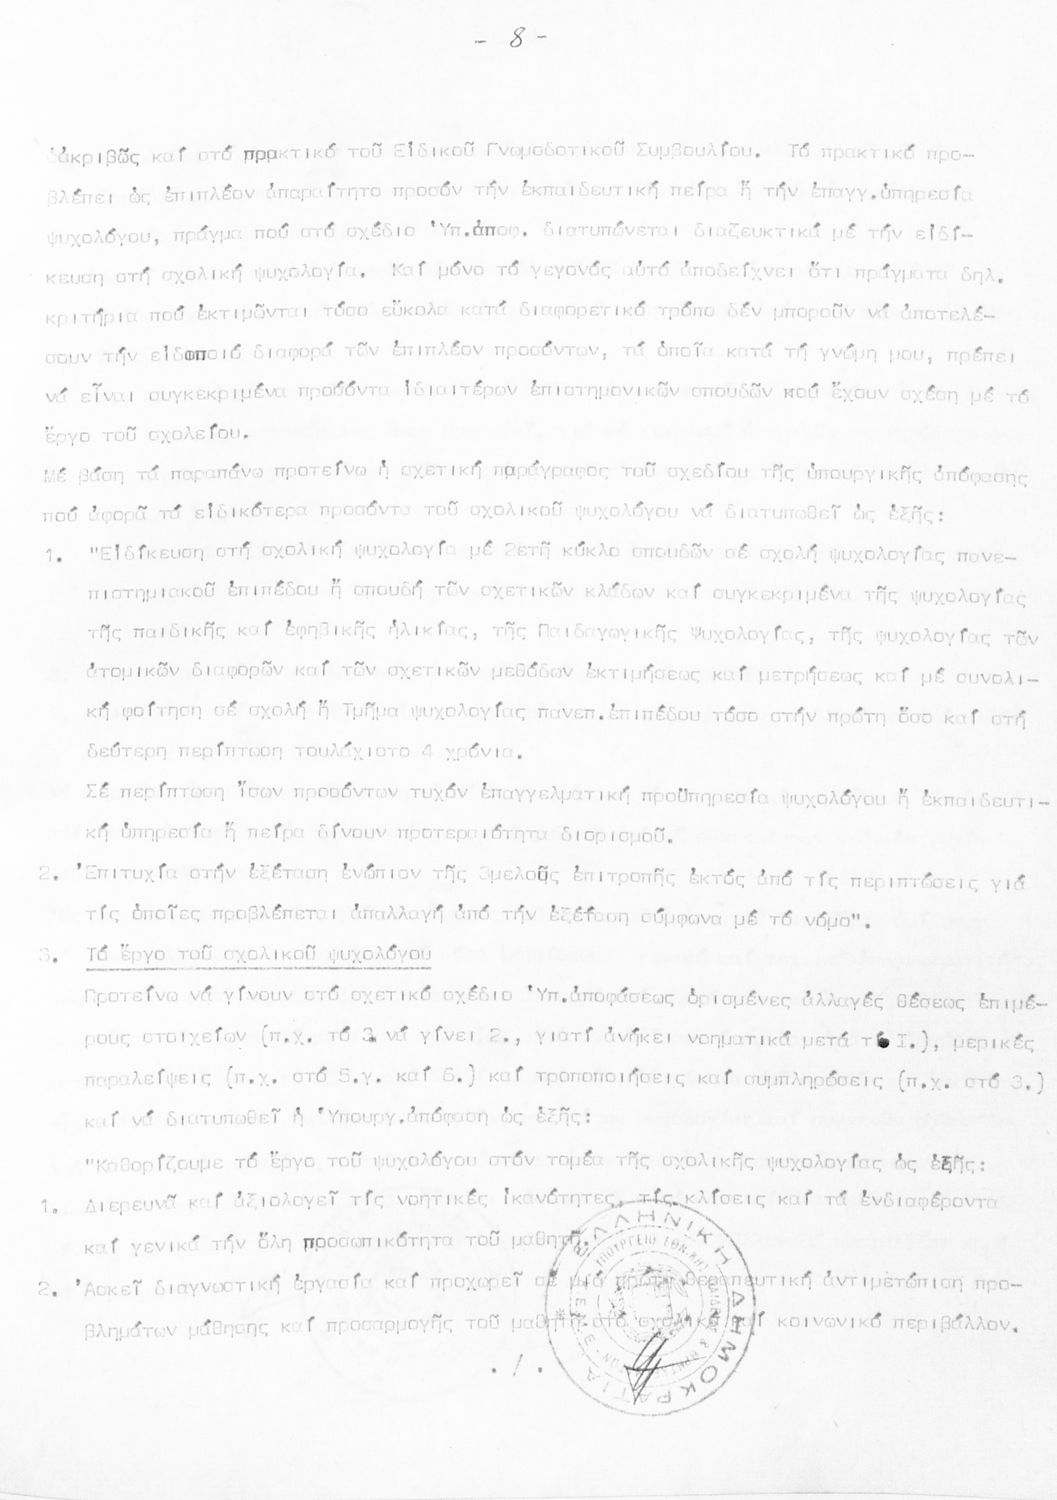 - 8 -
ἀκριβῶς καί στό πρακτικό τοῦ Εἰδικοῦ Γνωμοδοτικοῦ Συμβουλίου. Τό πρακτικό προ-
βλέπει ὡς ἐπιπλέον ἀπαραίτητο προσόν τήν ἐκπαιδευτική πείρα ἤ τήν ἐπαγγ.ὑπηρεσία
ψυχολόγου, πράγμα πού στό σχέδιο Ὑπ.ἀποφ. διατυπώνεται διαζευκτικά μέ τήν εἰδί-
κευση στή σχολική ψυχολογία. Καί μόνο τό γεγονός αὐτό ἀποδείχνει ὅτι πράγματα δηλ.
κριτήρια πού ἐκτιμῶνται τόσο εὔκολα κατά διαφορετικό τρόπο δέν μποροῦν νά ἀποτελέ-
σουν τήν εἰδοποιό διαφορά τῶν ἐπιπλέον προσόντων, τά ὁποῖα κατά τή γνώμη μου, πρέπει
νά εἶναι συγκεκριμένα προσόντα ἰδιαιτέρων ἐπιστημονικῶν σπουδῶν πού ἔχουν σχέση μέ τό
ἔργο τοῦ σχολείου.
Μέ βάση τά παραπάνω προτείνω ἡ σχετική παράγραφος τοῦ σχεδίου τῆς ὑπουργικῆς ἀπόφασης
πού ἀφορᾶ τά εἰδικότερα προσόντα τοῦ σχολικοῦ ψυχολόγου νά διατυπωθεῖ ὡς ἑξῆς:
1. "Εἰδίκευση στή σχολική ψυχολογία μέ 2ετῆ κύκλο σπουδῶν σέ σχολή ψυχολογίας πανε-
πιστημιακοῦ ἐπιπέδου ἤ σπουδή τῶν σχετικῶν κλάδων καί συγκεκριμένα τῆς ψυχολογίας
τῆς παιδικῆς καί ἐφηβικῆς ἡλικίας, τῆς Παιδαγωγικῆς Ψυχολογίας, τῆς ψυχολογίας τῶν
ἀτομικῶν διαφορῶν καί τῶν σχετικῶν μεθόδων ἐκτιμήσεως καί μετρήσεως καί μέ συνολι-
κή φοίτηση σέ σχολή ἤ Τμῆμα ψυχολογίας πανεπ.ἐπιπέδου τόσο στήν πρώτη ὅσο καί στή
δεύτερη περίπτωση τουλάχιστο 4 χρόνια.
Σέ περίπτωση ἴσων προσόντων τυχόν ἐπαγγελματική προϋπηρεσία ψυχολόγου ἤ ἐκπαιδευτι-
κή ὑπηρεσία ἤ πείρα δίνουν προτεραιότητα διορισμοῦ.
2. Ἐπιτυχία στήν ἐξέταση ἐνώπιον τῆς 3μελοῦς ἐπιτροπῆς ἐκτός ἀπό τίς περιπτώσεις γιά
τίς ὁποῖες προβλέπεται ἀπαλλαγή ἀπό τήν ἐξέταση σύμφωνα μέ τό νόμο".
3. Τό ἔργο τοῦ σχολικοῦ ψυχολόγου
Προτείνω νά γίνουν στό σχετικό σχέδιο Ὑπ.ἀποφάσεως ὁρισμένες ἀλλαγές θέσεως ἐπιμέ-
ρους στοιχείων (π.χ. τό 3 νά γίνει 2., γιατί ἀνήκει νοηματικά μετά τό I.), μερικές
παραλείψεις (π.χ. στό 5.γ. καί 6.) καί τροποποιήσεις καί συμπληρώσεις (π.χ. στό 3.)
καί νά διατυπωθεῖ ἡ Ὑπουργ.ἀπόφαση ὡς ἑξῆς:
"Καθορίζουμε τό ἔργο τοῦ ψυχολόγου στόν τομέα τῆς σχολικῆς ψυχολογίας ὡς ἑξῆς:
1. Διερευνᾶ καί ἀξιολογεῖ τίς νοητικές ἱκανότητες, τίς κλίσεις καί τά ἐνδιαφέροντα
καί γενικά τήν ὅλη προσωπικότητα τοῦ μαθητῆ.
2. Ἀσκεῖ διαγνωστική ἐργασία καί προχωρεῖ σέ μιά πρώτη θεραπευτική ἀντιμετώπιση προ-
βλημάτων μάθησης καί προσαρμογῆς τοῦ μαθητῆ στό σχολικό καί κοινωνικό περιβάλλον.
./.
ΕΛΛΗΝΙΚΗ ΔΗΜΟΚΡΑΤΙΑ
ΥΠΟΥΡΓΕΙΟ ΕΘΝΙΚΗΣ